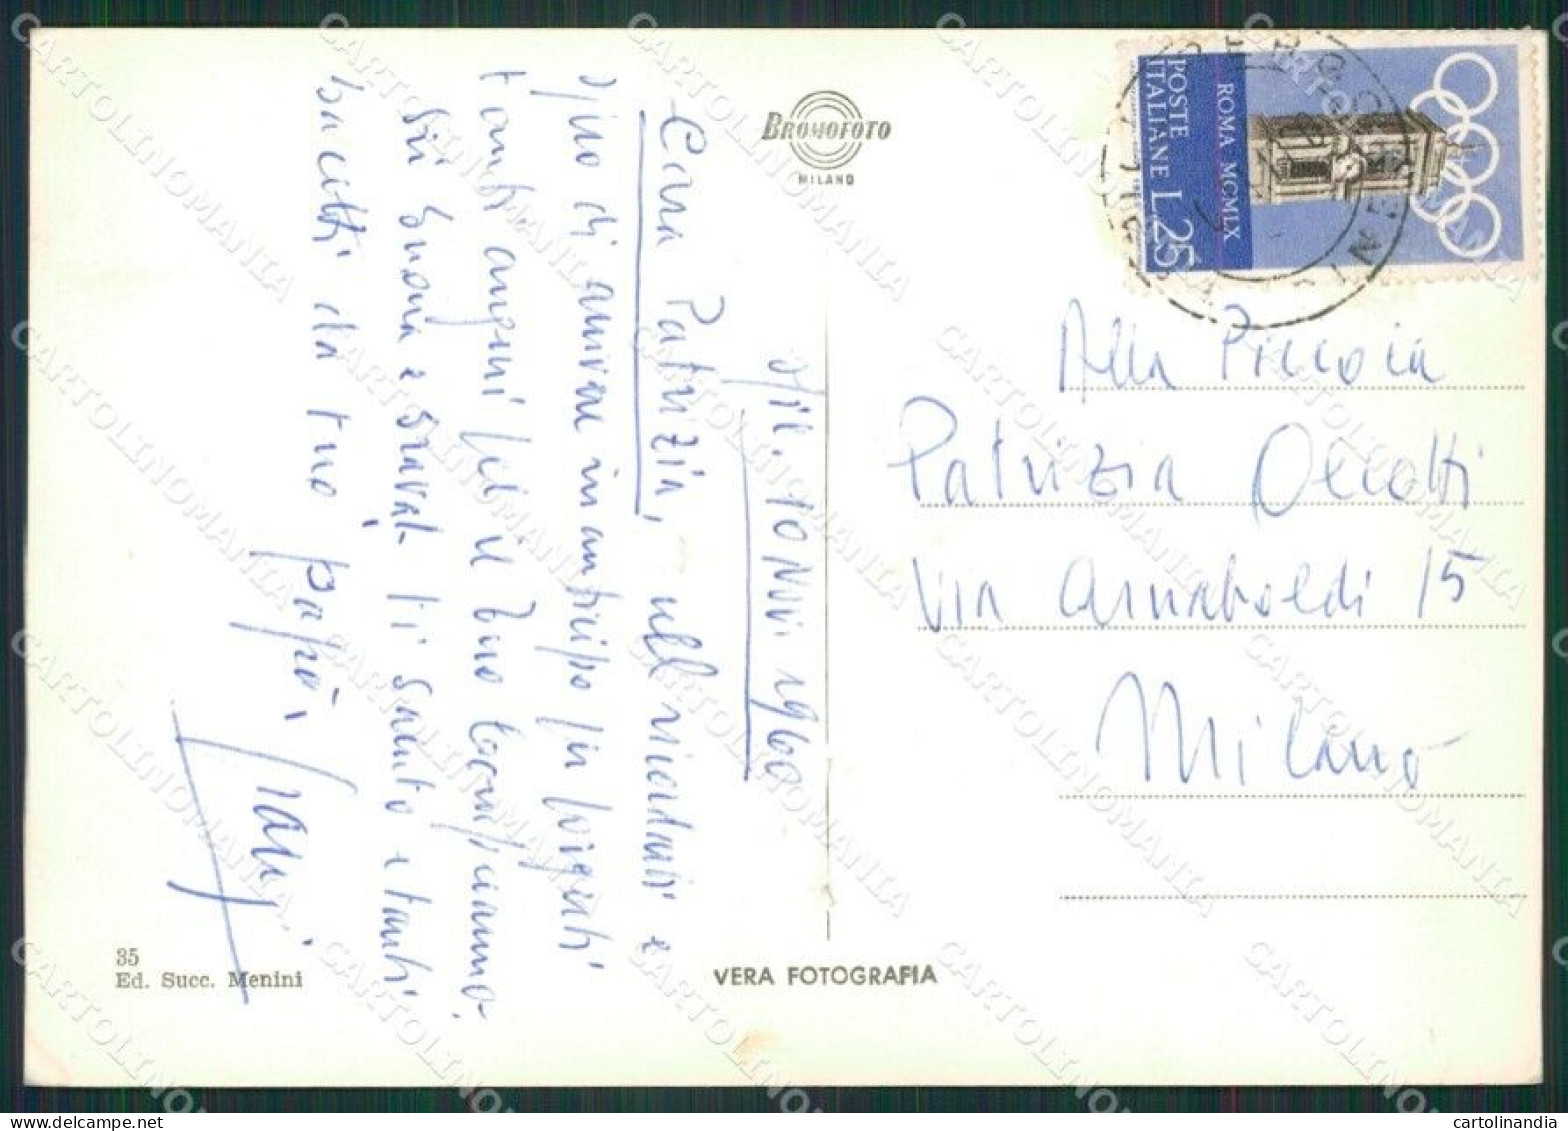 BROMOFOTO
MILANO
POSTE
ITALIANE L.25
ROMA MCMLX
Mil. 10 Nov. 1960
Cara Patrizia, nel ricordarti e
di arrivare in anticipo per porgerti
tanti auguri per il tuo compleanno.
Sii buona e brava ti saluto e tanti
bacetti dal tuo papà,
Alla Piccola
Patrizia
Via Arnaboldi 15
Milano
35
Ed. Succ. Menini
VERA FOTOGRAFIA
CARTOLINOMANIA
cartolinandia